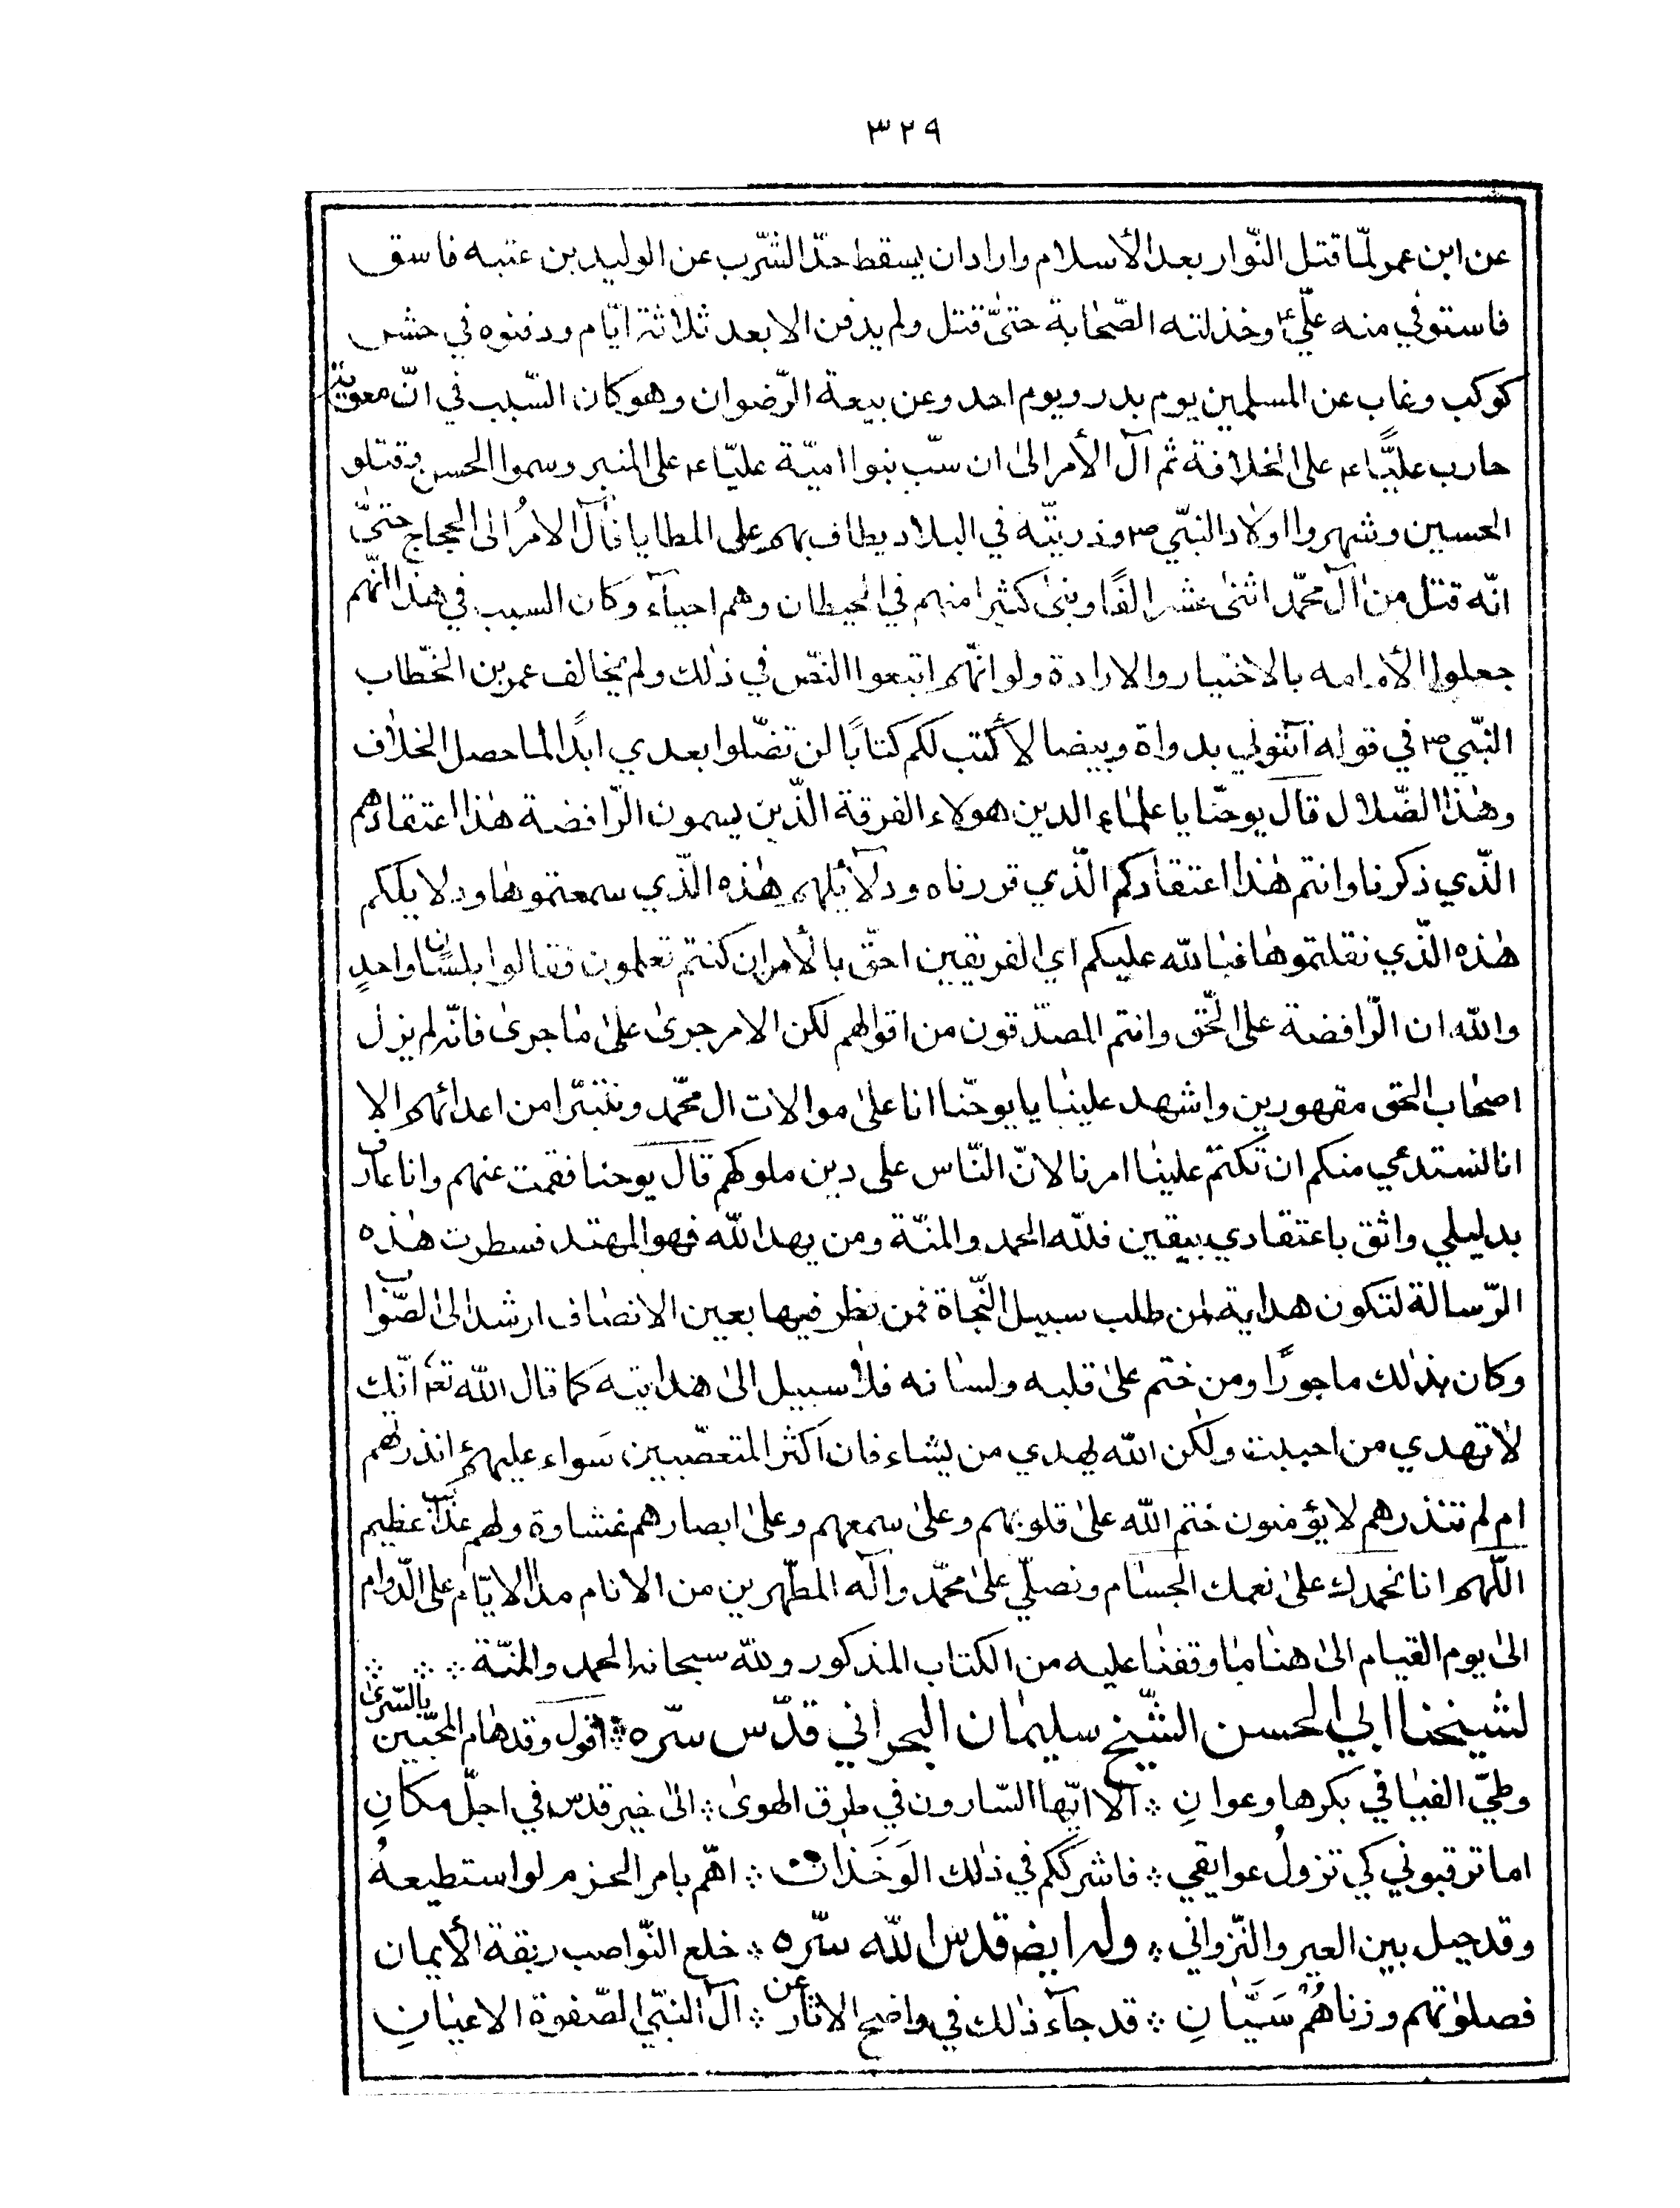 ٣٢٩
عن ابن عمر لمّا قتل النّوار بعد الأسلام واراد ان يسقط حدّ الشّرب عن الوليد بن عتبه فاسق
فاستوفي منه عليّ ع وخذلته الصّحابة حتىّ قتل ولم يدفن الا بعد ثلاثة ايّام ودفنوه في حش
كوكب وغاب عن المسلمين يوم بدر ويوم احد وعن بيعة الرّضوان وهو كان السّبب في انّ معوية
حارب عليًّا ع على الخلافة ثم آل الأمر الىٰ ان سبّ بنوا اميّة عليّا ع على المنبر وسموا الحسن وقتلو
الحسين وشهروا اولاد النبّي ص وذريّته في البلاد يطاف بهم على المطايا فآل الامرُ الى الحجاج حتىّ
انّه قتل من آل محمّد اثنىٰ عشر الفًا وبنىٰ كثيرا منهم في الحيطان وهم احيآء وكان السبب في هذا انّهم
جعلوا الأمامه بالاختيار والارادة ولو انّهم اتبعوا النصّ في ذلك ولم يخالف عمر بن الخطّاب
النبّي ص في قوله آتنوني بدواة وبيضا لأكتب لكم كتابًا لن تضّلوا بعدي ابدًا لما حصل الخلاف
وهٰذا الضّلال قال يوحنّا يا علماء الدين هولاء الفرقة الذّين يسمون الرّافضة هٰذا اعتقادهم
الذّي ذكرنا وانتم هٰذا اعتقادكم الذّي قررناه ودلآئلهم هٰذه الذّي سمعتموها ودلايلكم
هٰذه الذّي نقلتموها فبالله عليكم اي الفريقين احقّ بالأمر ان كنتم تعلمون فقالوا بلسان واحدٍ
والله ان الرّافضة على الحّق وانتم المصدّقون من اقوالهم لكن الامر جرىٰ علىٰ ما جرىٰ فانّه لم يزل
اصحاب الحق مقهورين واشهد علينا يا يوحنّا انا علىٰ موالات ال محمّد ونتبرّا من اعدائهم الا
انا نستدعي منكم ان تكتم علينا امرنا لانّ النّاس على دين ملوكهم قال يوحنا فقمت عنهم وانا عارف
بدليلي واثق باعتقادي بيقين فللّه الحمد والمنّة ومن يهد الله فهو المهتد فسطرت هذه
الرّسالة لتكون هداية لمن طلب سبيل النّجاة فمن نظر فيها بعين الانصاف ارشد الىٰ الصّواب
وكان بذلك ماجورًا ومن ختم علىٰ قلبه ولسانه فلا سبيل الىٰ هدايته كما قال الله تعٰ انّك
لا تهدي من احببت ولكن الله يهدي من يشاء فان اكثر المتعصّبين سَواء عليهم ء انذرتهم
ام لم تنذرهم لا يؤمنون ختم الله علىٰ قلوبهم وعلىٰ سمعهم وعلىٰ ابصارهم غشاوة ولهم عذاب عظيم
اللّهم انا نحمدك علىٰ نعمك الجسام ونصلّي علىٰ محمّد وآله المطّهرين من الانام مدا الايّام على الدّوام
الىٰ يوم القيام الىٰ هنا ما وقفنا عليه من الكتاب المذكور ولله سبحانه الحمد والمنّة
لشيخنا ابي الحسن الشّيخ سليمان البحراني قدّس سّره ؞ اقول وقد هام المحبّين بالسّرىٰ
وطيّ الفيافي بكرها وعوانِ ؞ آلا ايّها السّارون في طرق الهوىٰ ؞ الىٰ خير قدس في اجلّ مكانِ
اما ترقبوني كي تزولُ عوايقي ؞ فاشرككم في ذلك الوَخَذات ؞ اهّم بامر الحزم لو استطيعهُ
وقد حيل بين العير والنّزواني ؞ وله ايضا قدس الله سّره ؞ خلع النّواصب ربقة الأيمان
فصلوٰتهم وزناهُمْ سَيّانِ ؞ قد جآء ذلك في واضح الاثار عن ؞ آل النبّي الصّفوة الاعيانِ